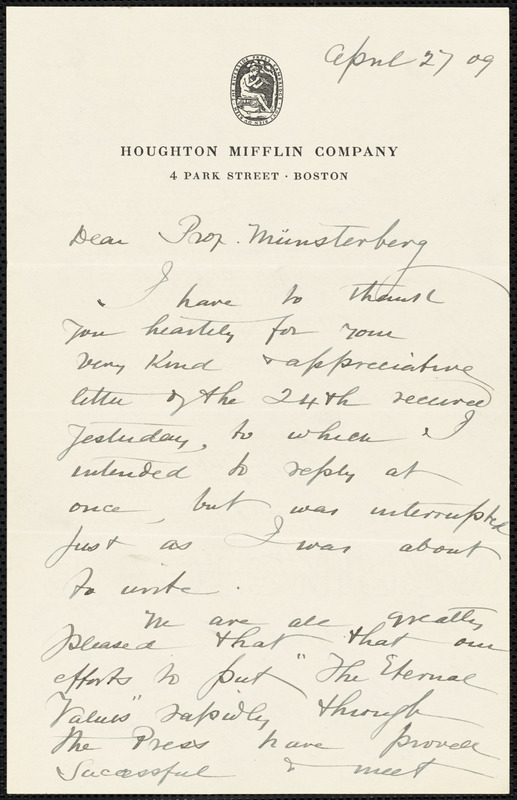 April 27 09
HOUGHTON MIFFLIN COMPANY
4 PARK STREET · BOSTON
Dear Prof. Münsterberg
I have to thank
you heartily for your
very kind & appreciative
letter of the 24th received
yesterday, to which I
intended to reply at
once, but was interrupted
just as I was about
to write.
We are all greatly
pleased that that our
efforts to put "The Eternal
Values" rapidly through
the Press have proved
successful & meet